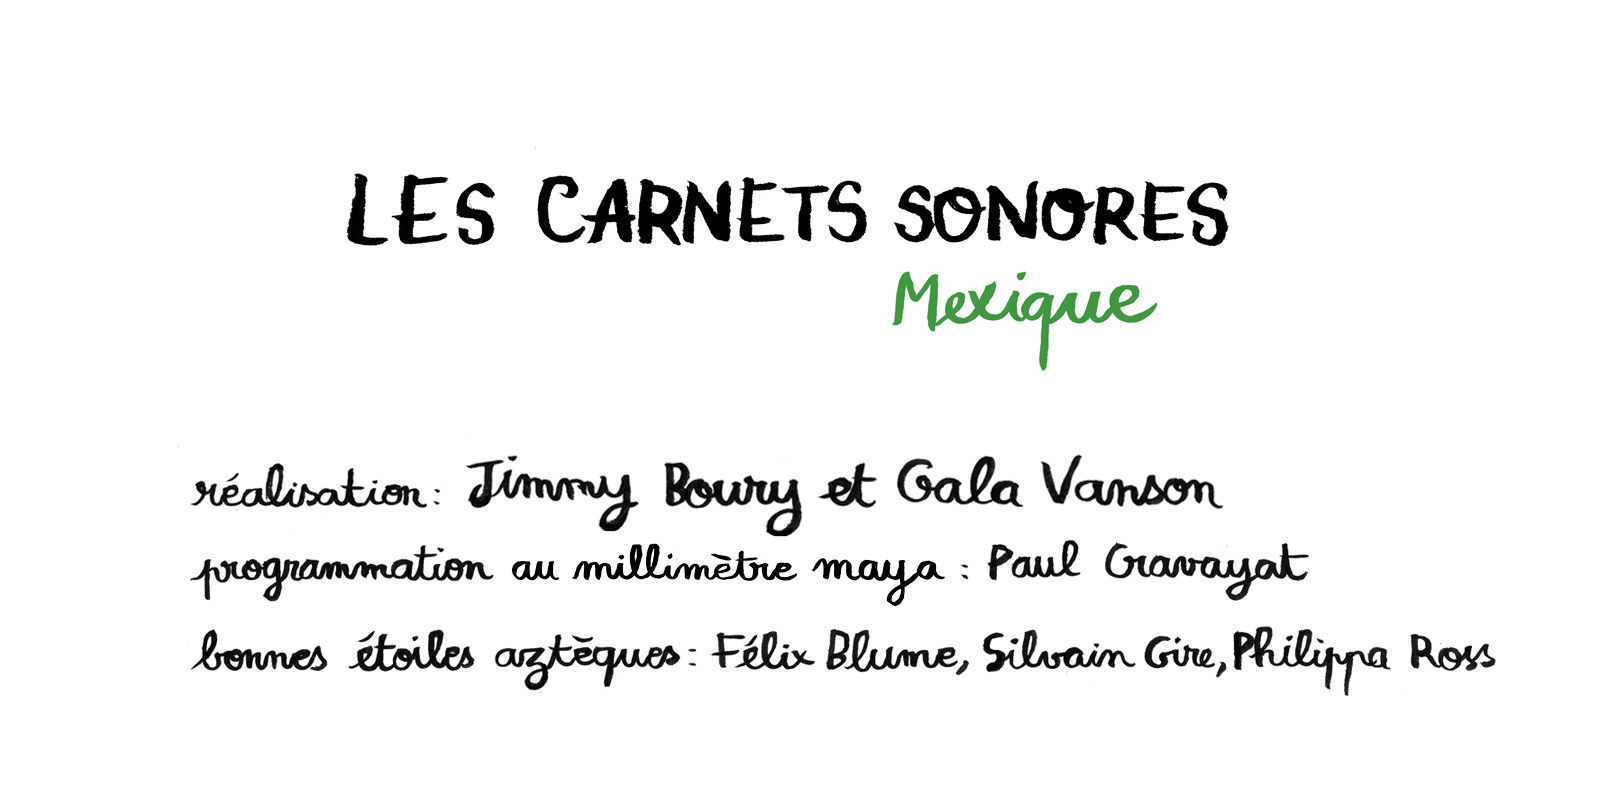 LES CARNETS SONORES
Mexique
réalisation : Jimmy Boury et Gala Vanson
programmation au millimètre maya : Paul Gravayat
bonnes étoiles aztèques : Félix Blume, Silvain Gire, Philippa Ross